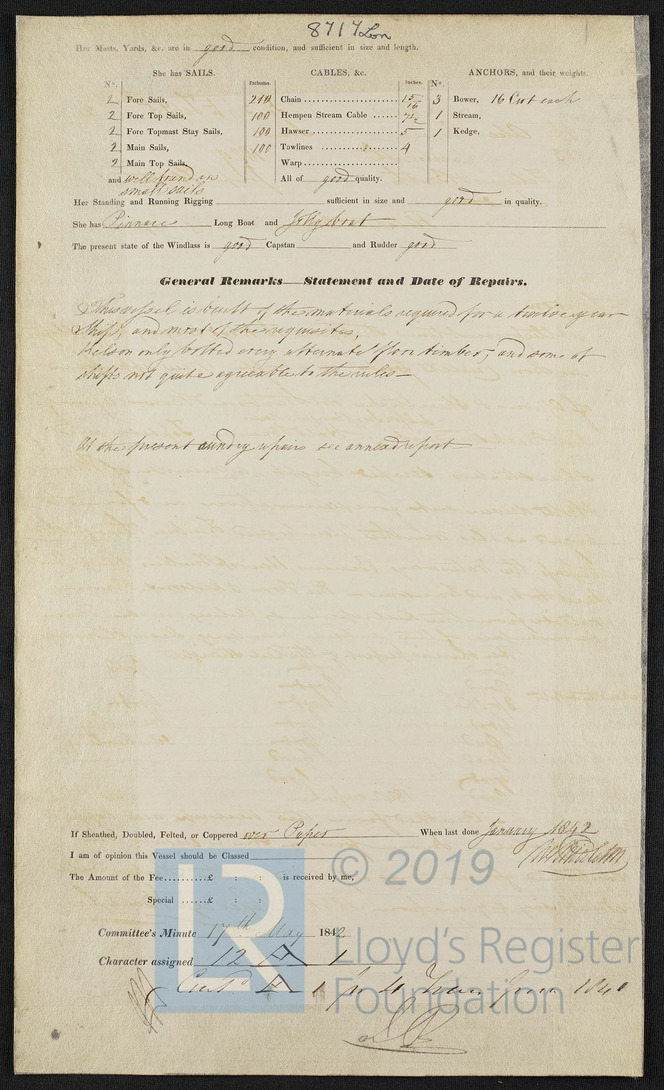 8717 Lon
Her Masts, Yards, &c. are in good condition, and sufficient in size and length.
She has SAILS.
CABLES, &c.
ANCHORS, and their weights.
N°. Fathoms. Inches. N°.
2 Fore Sails, 210 Chain 15/16 3 Bower, 16 Cwt each
2 Fore Top Sails, 100 Hempen Stream Cable 7½ 1 Stream,
2 Fore Topmast Stay Sails, 100 Hawser 5 1 Kedge,
2 Main Sails, 100 Towlines 4
2 Main Top Sails, Warp
and well found in small sails All of good quality.
Her Standing and Running Rigging sufficient in size and good in quality.
She has Pinnace Long Boat and Jolly boat
The present state of the Windlass is good Capstan and Rudder good
General Remarks—Statement and Date of Repairs.
This vessel is built of the materials required for a twelve year
Ship, and most of the requisites,
Kelson only bolted every alternate floor timber, and some of
shifts not quite agreeable to the rules—
At the present sundry repairs see annexed report
If Sheathed, Doubled, Felted, or Coppered over Paper When last done January 1842
I am of opinion this Vessel should be Classed
The Amount of the Fee £ : : is received by me,
Special £ : :
Committee's Minute 17th May 1842
Character assigned 12 A 1
A 1
© 2019
LR
Lloyd's Register
Foundation